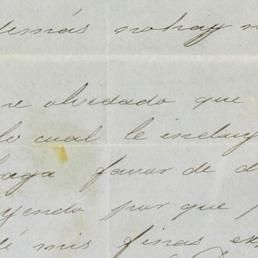 demás no hay
olvidado que
lo cual le incluy
haga favor de d
yendo por que
mis finas ex